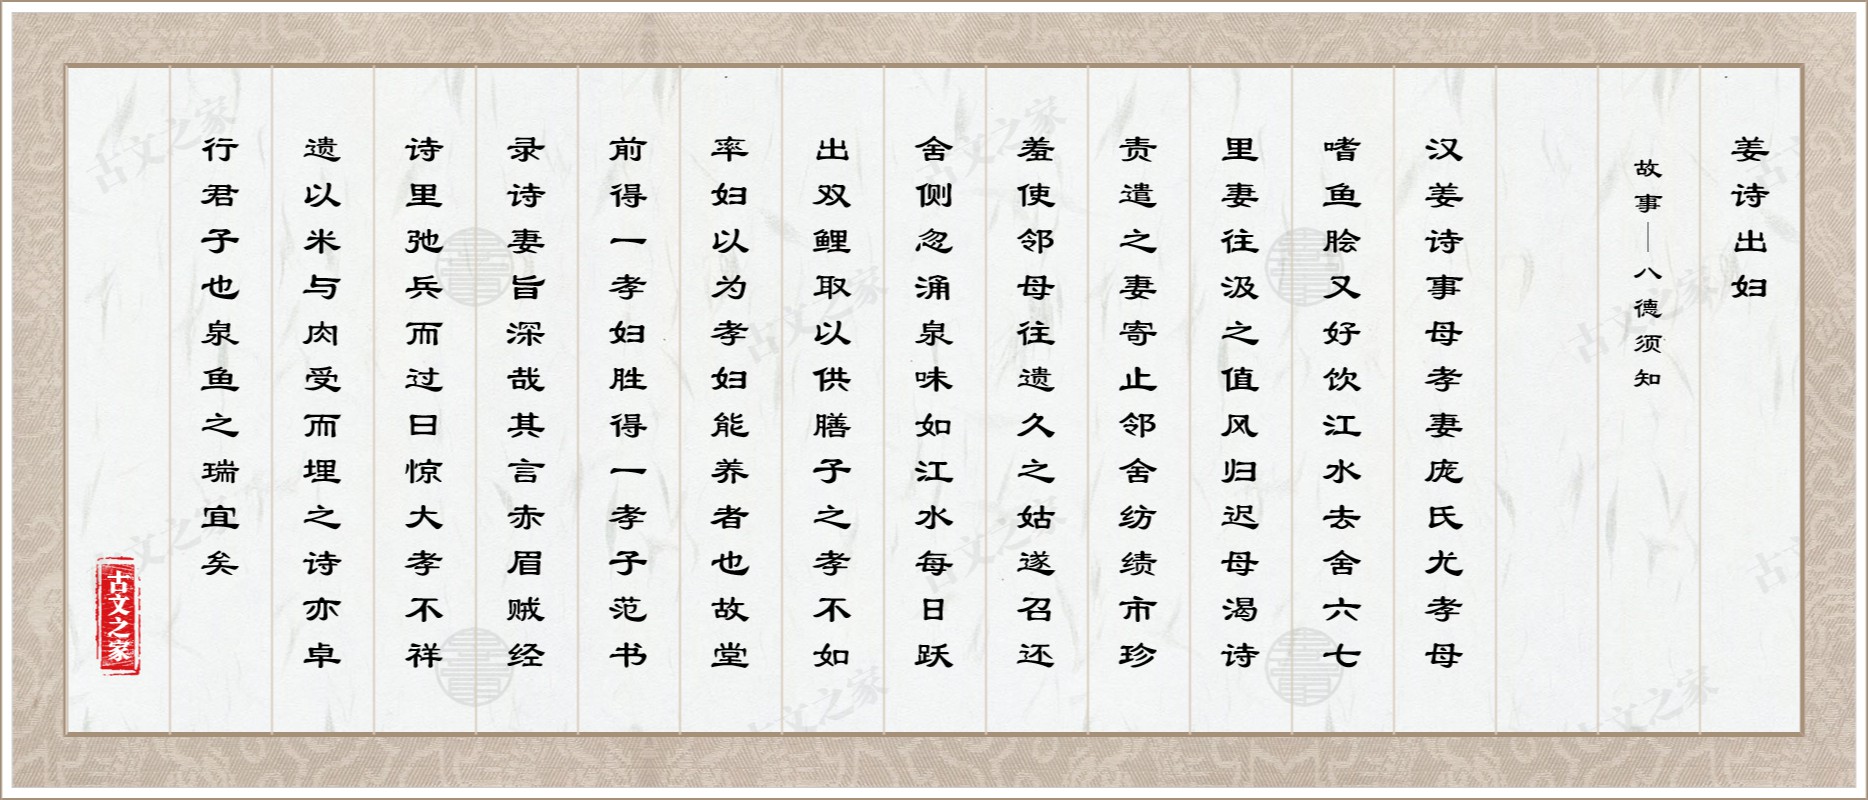 姜诗出妇
故事—八德须知
汉姜诗事母孝妻庞氏尤孝母
嗜鱼脍又好饮江水去舍六七
里妻往汲之值风归迟母渴诗
责遣之妻寄止邻舍纺绩市珍
羞使邻母往遗久之姑遂召还
舍侧忽涌泉味如江水每日跃
出双鲤取以供膳子之孝不如
率妇以为孝妇能养者也故堂
前得一孝妇胜得一孝子范书
录诗妻旨深哉其言赤眉贼经
诗里弛兵而过曰惊大孝不祥
遗以米与肉受而埋之诗亦卓
行君子也泉鱼之瑞宜矣
古文之家